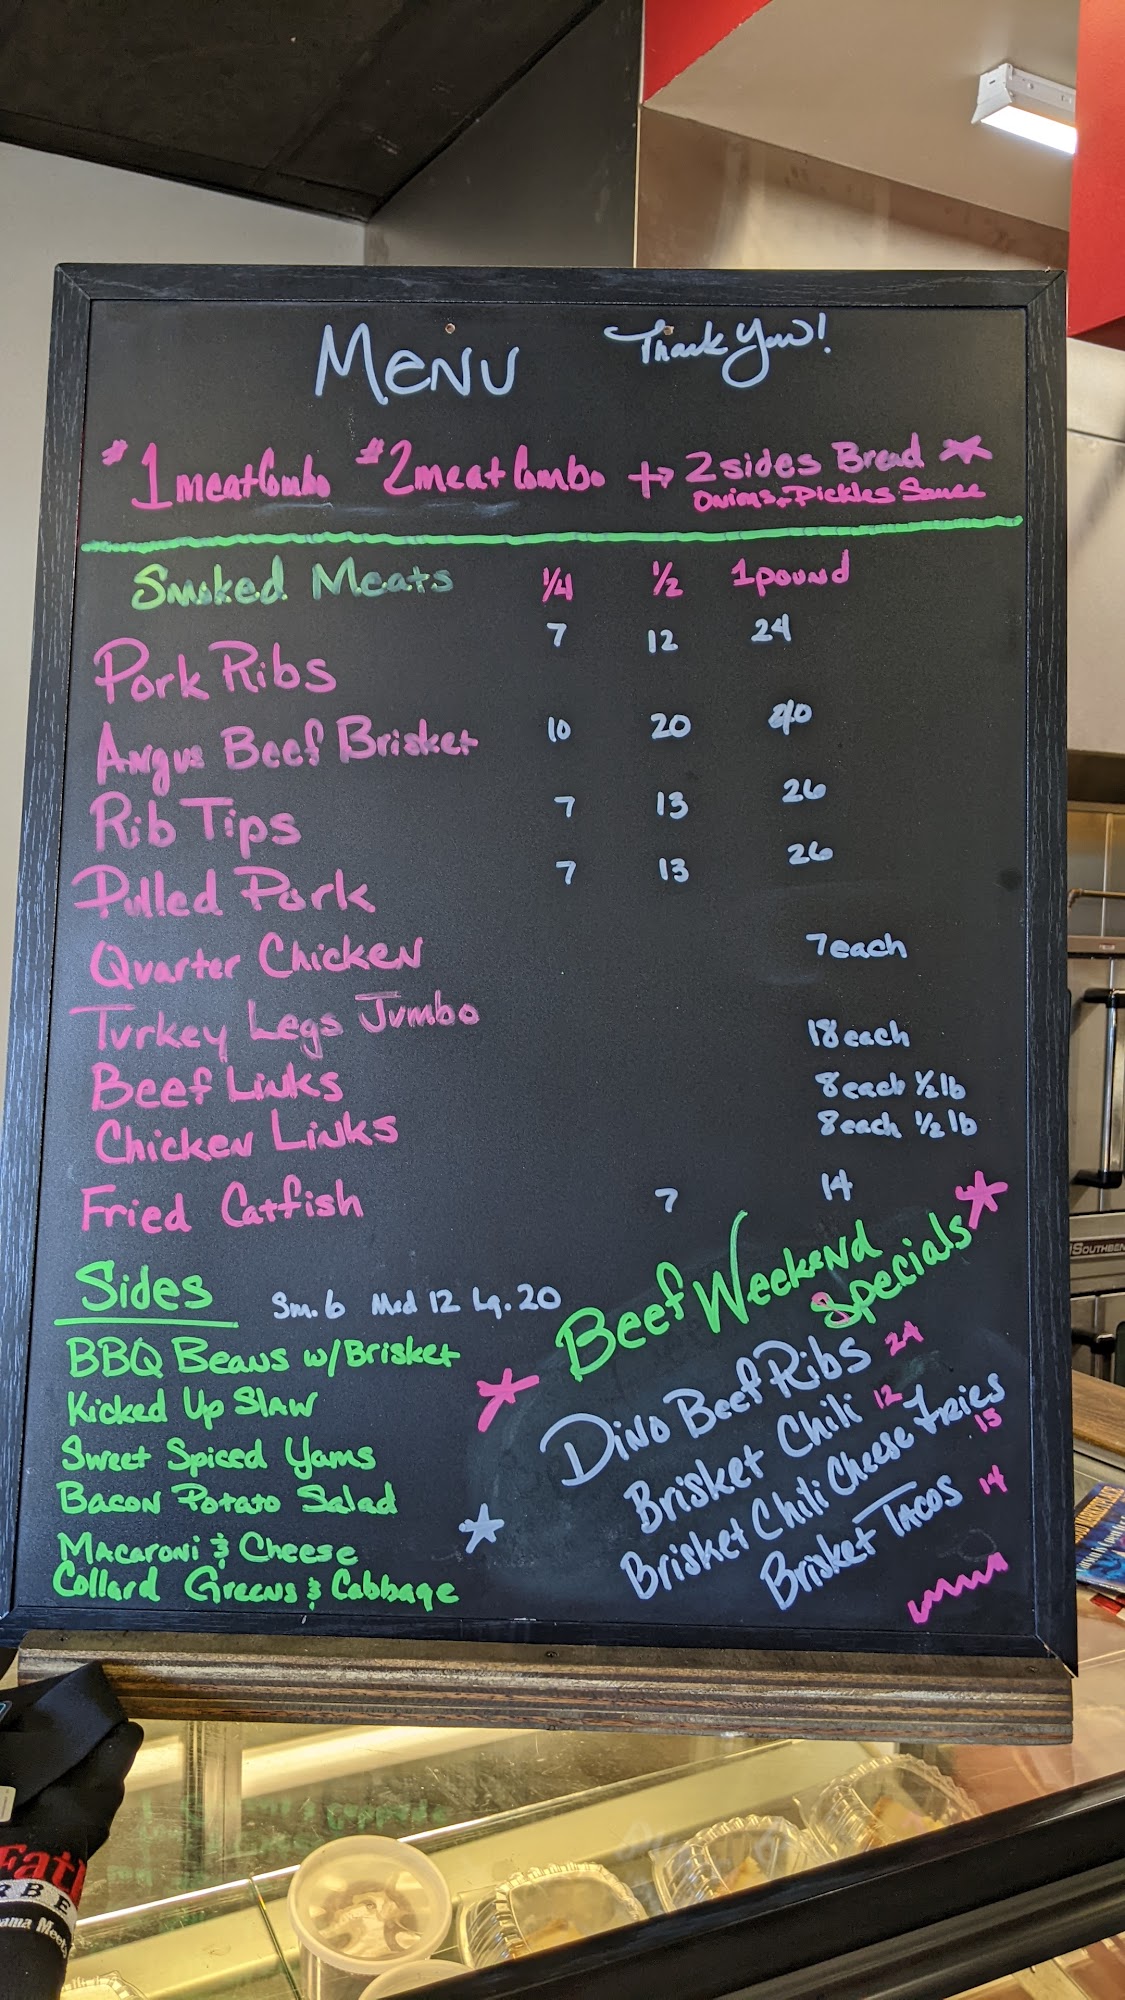 Menu Thank You!
#1 meat Combo #2 meat Combo + 2 sides Bread
Onions, Pickles Sauce
Smoked Meats 1/4 1/2 1 pound
Pork Ribs 7 12 24
Angus Beef Brisket 10 20 40
Rib Tips 7 13 26
Pulled Pork 7 13 26
Quarter Chicken 7 each
Turkey Legs Jumbo 18 each
Beef Links 8 each 1/2 lb
Chicken Links 8 each 1/2 lb
Fried Catfish 7 14
Sides Sm. 6 Med 12 Lg. 20
BBQ Beans w/Brisket
Kicked Up Slaw
Sweet Spiced Yams
Bacon Potato Salad
Macaroni & Cheese
Collard Greens & Cabbage
Beef Weekend
Specials
Dino Beef Ribs 24
Brisket Chili 12
Brisket Chili Cheese Fries 13
Brisket Tacos 14
SOUTHBEN
Fat
RBE
ama Meets